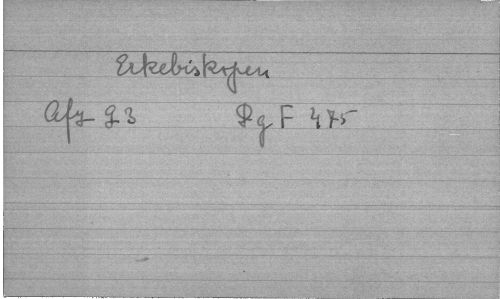 Erkebiskopen
Afz g 3 Rg F 475